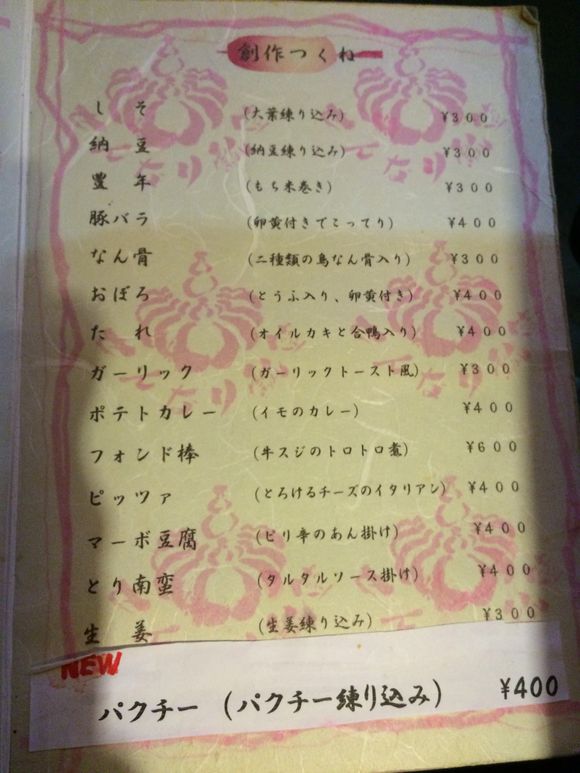 創作つくね
しそ (大葉練り込み) ¥300
納豆 (納豆練り込み) ¥300
豊年 (もち米巻き) ¥300
豚バラ (卵黄付きでこってり) ¥400
なん骨 (二種類の鳥なん骨入り) ¥300
おぼろ (とうふ入り、卵黄付き) ¥400
たれ (オイルカキと合鴨入り) ¥400
ガーリック (ガーリックトースト風) ¥300
ポテトカレー (イモのカレー) ¥400
フォンド棒 (牛スジのトロトロ煮) ¥600
ピッツァ (とろけるチーズのイタリアン) ¥400
マーボ豆腐 (ピリ辛のあん掛け) ¥400
とり南蛮 (タルタルソース掛け) ¥400
生姜 (生姜練り込み) ¥300
NEW
パクチー (パクチー練り込み) ¥400